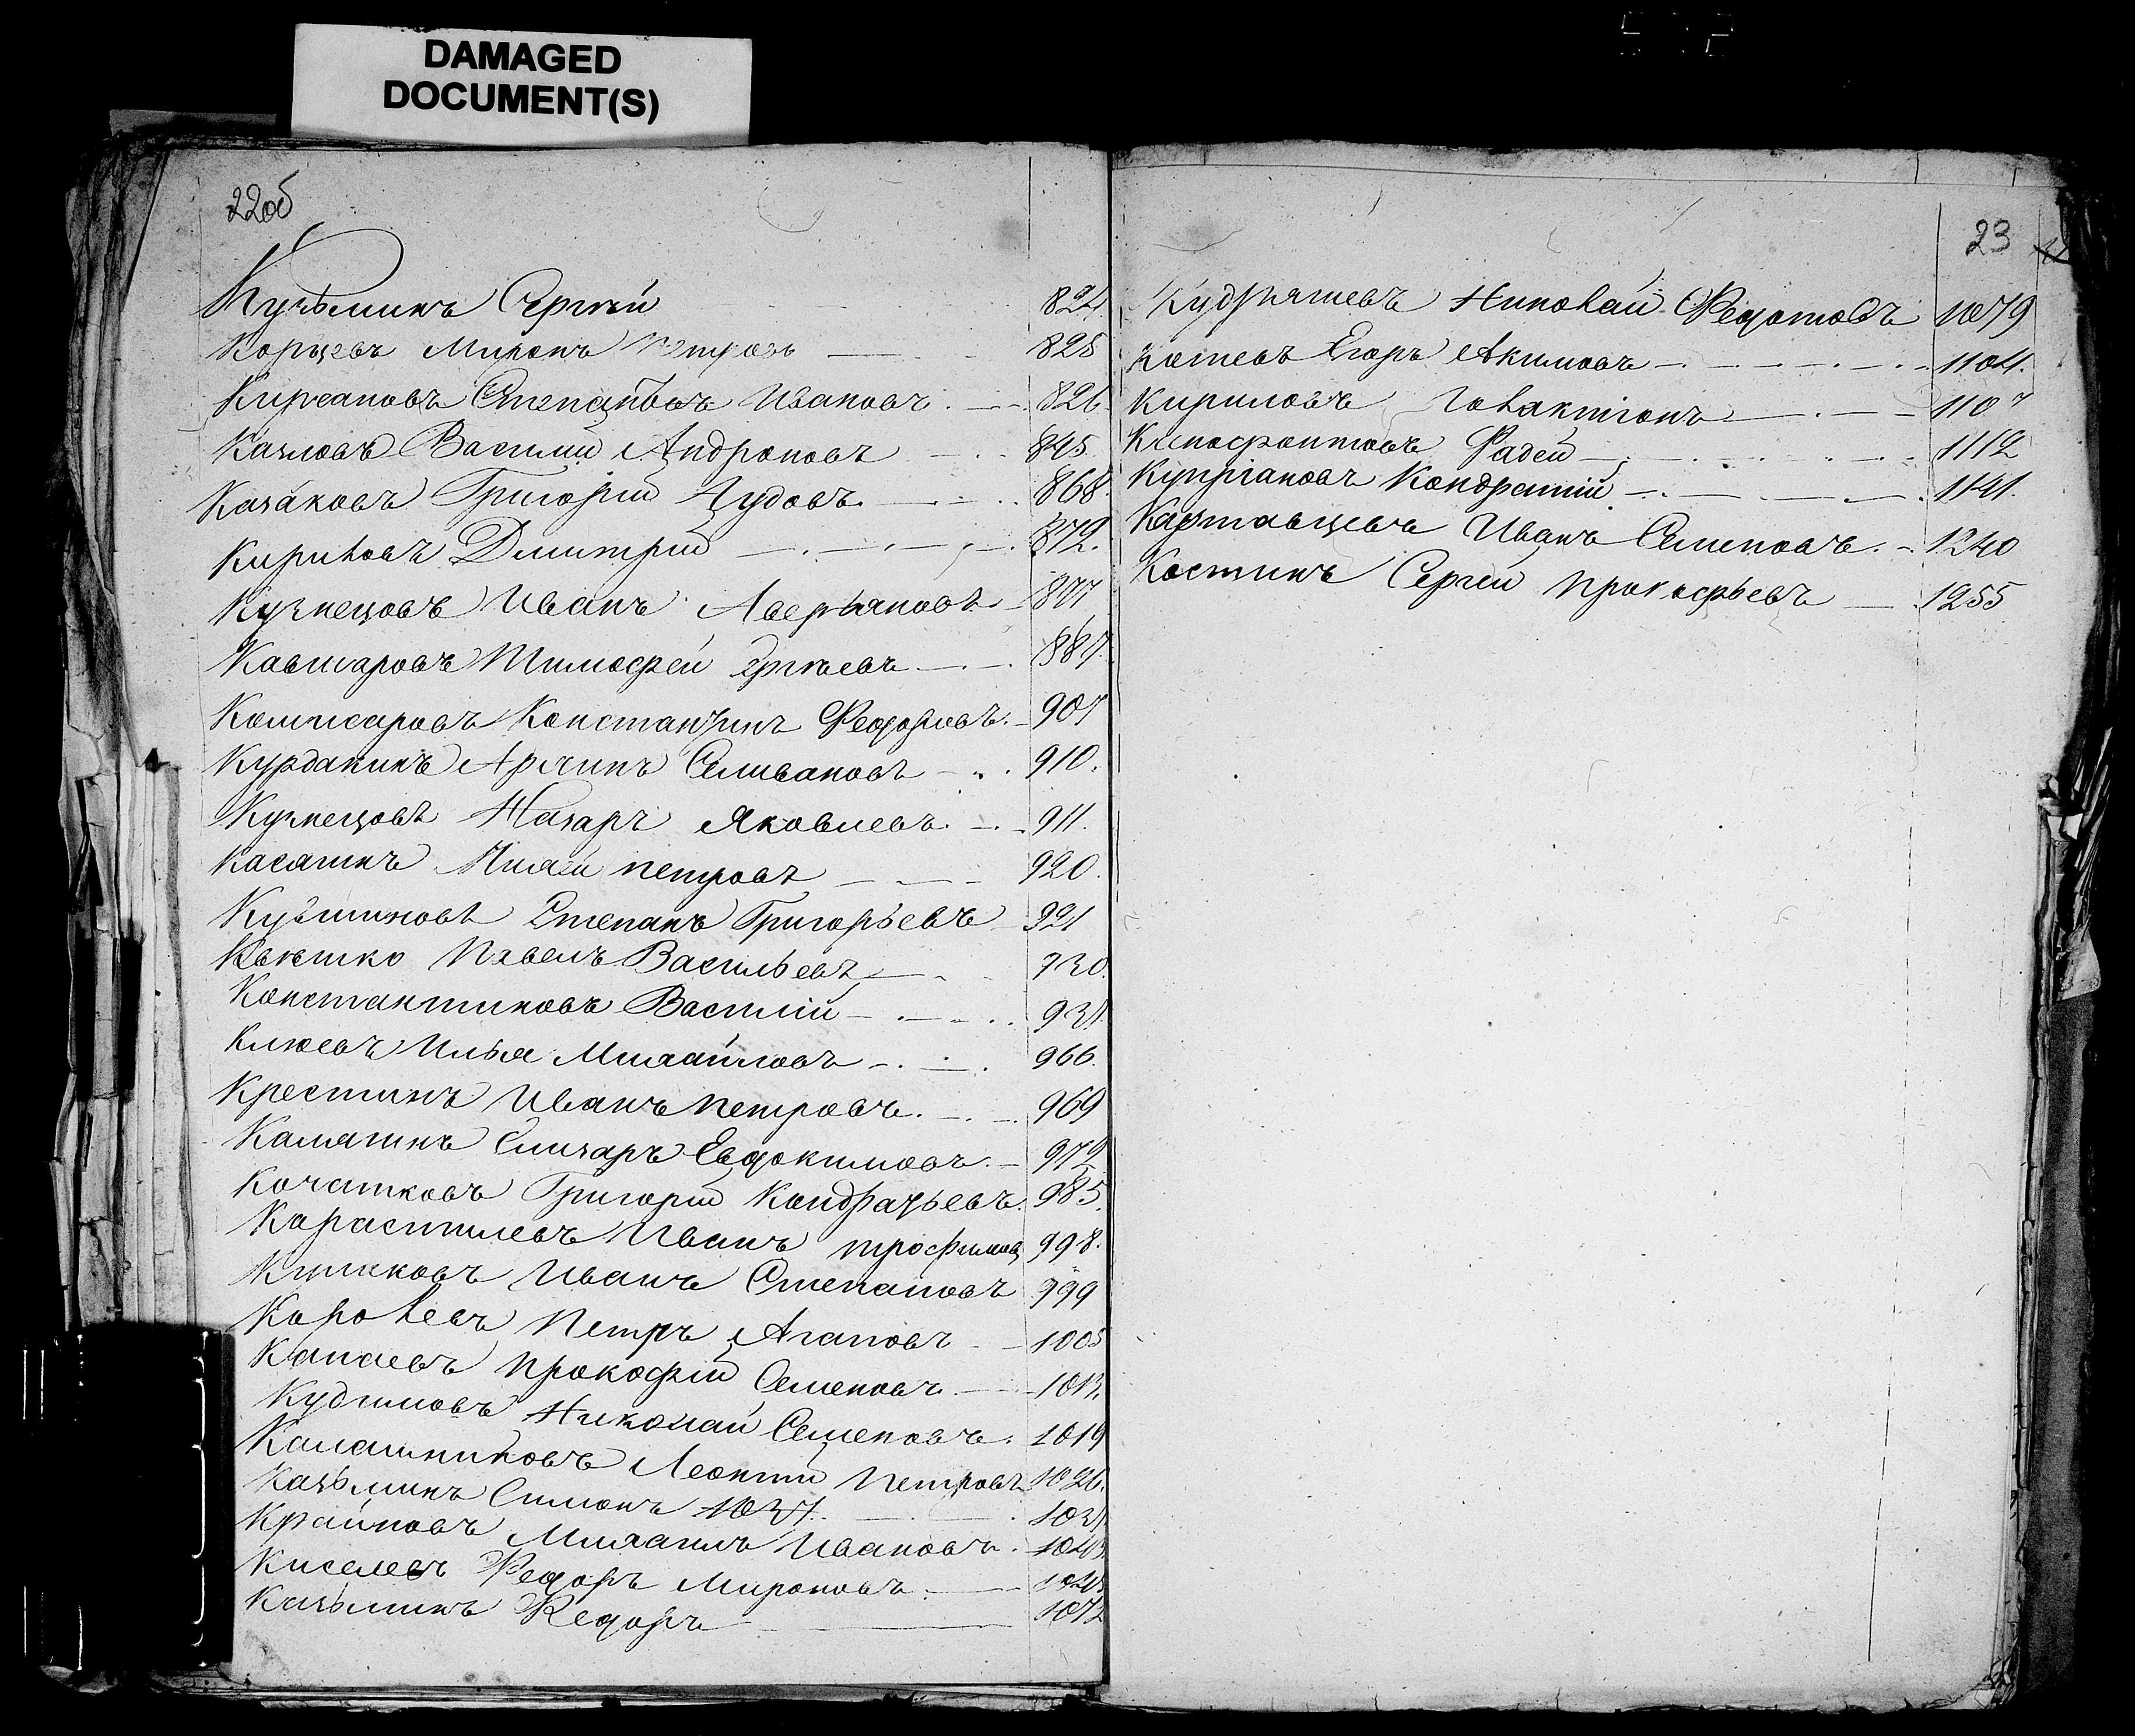 DAMAGED
DOCUMENT(S)
22об
Кузьминъ Сергѣй 824
Корцевъ Миронъ Петровъ 825
Кирсановъ Степанъ Ивановъ 826
Казловъ Василий Андроновъ 845
Казаковъ Григорій Чудовъ 868
Кириловъ Дмитрій 872.
Кузнецовъ Иванъ Аверьяновъ 877
Кавшаровъ Тимофей 887
Комисаровъ Константинъ Федоровъ 907
Курдакинъ Селивановъ 910.
Кузнецовъ Назаръ Яковлевъ 911.
Касаткинъ петровъ 920.
Степанъ Григорьевъ 921
Павелъ Васильевъ 930.
Константиновъ Василій
Клюевъ Илья Михайловъ 966.
Крестинъ Иванъ петровъ. 969
Елизаръ Евдокимовъ. 972
Кочетковъ Григорій Кондратьевъ. 985.
Карастилевъ Иванъ трофимовъ 998.
Иванъ Степановъ 999
Королевъ Петръ Агаповъ 1005
Канаевъ прокофій Семеновъ 1013.
Кудимовъ Николай Семеновъ. 1019
Калашниковъ Леонтий Петровъ 1026.
Казьминъ Симонъ
Крайновъ Михаилъ Ивановъ. 1043
Киселевъ Федоръ Мироновъ
Казьминъ Федоръ 1072
23
Кудряшевъ Николай Федотовъ 1079
Котевъ Егоръ Акимовъ 1104.
Кириловъ Галактіонъ 1107
Ксенофонтовъ Фадей 1112
Купріановъ Кондратій 1141.
Картавцевъ Иванъ Семеновъ. 1240
Костинъ Сергей прокофьевъ 1255